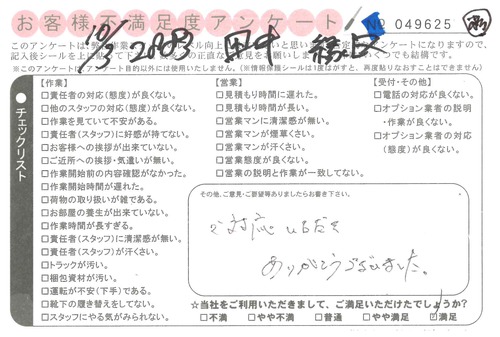 お客様不満足度アンケート
No 049625
10/3
田中
記入後シールを上に
※このアンケート目的以外には使用いたしません。（※情報保護シールは1度はがすと、再度貼りなおすことはできません）
チェックリスト
【作業】
□責任者の対応（態度）が良くない。
□他のスタッフの対応（態度）が良くない。
□作業を見ていて不安がある。
□責任者（スタッフ）に好感が持てない。
□お客様への挨拶が出来ていない。
□ご近所への挨拶・気遣いが無い。
□作業開始前の内容確認がなかった。
□作業開始時間が遅れた。
□荷物の取り扱いが雑である。
□お部屋の養生が出来ていない。
□作業時間が長すぎる。
□責任者（スタッフ）に清潔感が無い。
□責任者（スタッフ）が汗くさい。
□トラックが汚い。
□梱包資材が汚い。
□運転が不安（下手）である。
□靴下の履き替えをしてない。
□スタッフにやる気がみられない。
【営業】
□見積もり時間に遅れた。
□見積もり時間が長い。
□営業マンに清潔感が無い。
□営業マンが煙草くさい。
□営業マンが汗くさい。
□営業態度が良くない。
□営業の説明と作業が一致してない。
【受付・その他】
□電話の対応が良くない。
□オプション業者の説明
・作業が良くない。
□オプション業者の対応
（態度）が良くない。
その他、ご意見・ご要望等ありましたらお書き下さい。
ご対応いただき
ありがとうございました。
☆当社をご利用いただきまして、ご満足いただけたでしょうか？
□不満 □やや不満 □普通 □やや満足 ☑満足